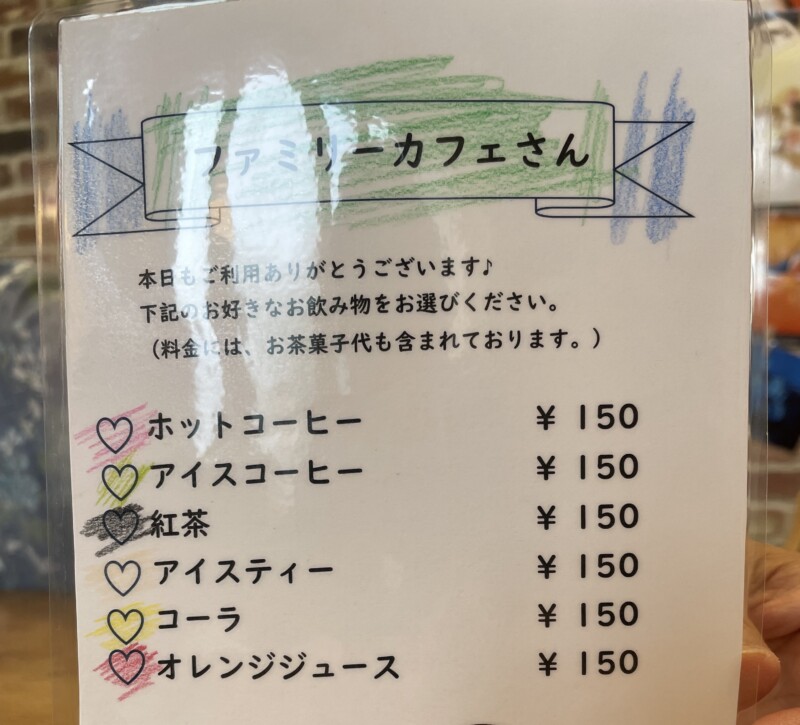 ファミリーカフェさん
本日もご利用ありがとうございます♪
下記のお好きなお飲み物をお選びください。
(料金には、お茶菓子代も含まれております。)
♡ ホットコーヒー ¥ 150
♡ アイスコーヒー ¥ 150
♡ 紅茶 ¥ 150
♡ アイスティー ¥ 150
♡ コーラ ¥ 150
♡ オレンジジュース ¥ 150